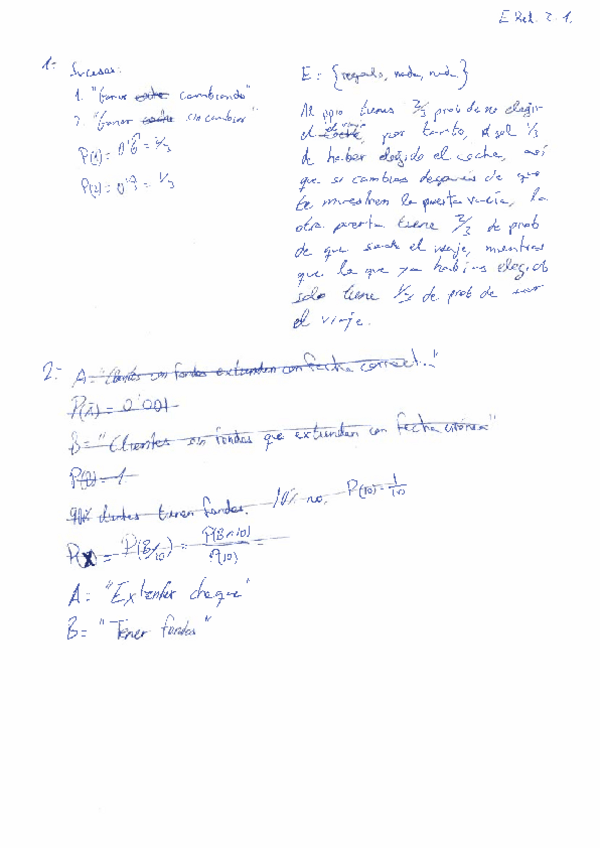 E Rel. 2.1.
1:-
Sucesos:
1. "Ganar coche cambiando"
2. "Ganar coche sin cambiar"
P(1) = 0'6̂ = 2/3
P(2) = 0'3̂ = 1/3
E = {regalo, nada, nada}
Al ppio tienes 2/3 prob de no elegir
el coche, por tanto, solo 1/3
de haber elegido el coche, así
que si cambias después de que
te muestren la puerta vacía, la
otra puerta tiene 2/3 de prob
de que sea el viaje, mientras
que la que ya habías elegido
solo tiene 1/3 de prob de ser
el viaje.
2:- A = "Clientes con fondos extienden con fecha correct..."
P(A) = 0'001
B = "Clientes sin fondos que extienden con fecha errónea"
P(B) = 1
90% clientes tienen fondos. 10% no. P(10) = 1/10
P(X) = P(B/10) = P(B∩10)/P(10) =
A = "Extender cheque"
B = "Tener fondos"